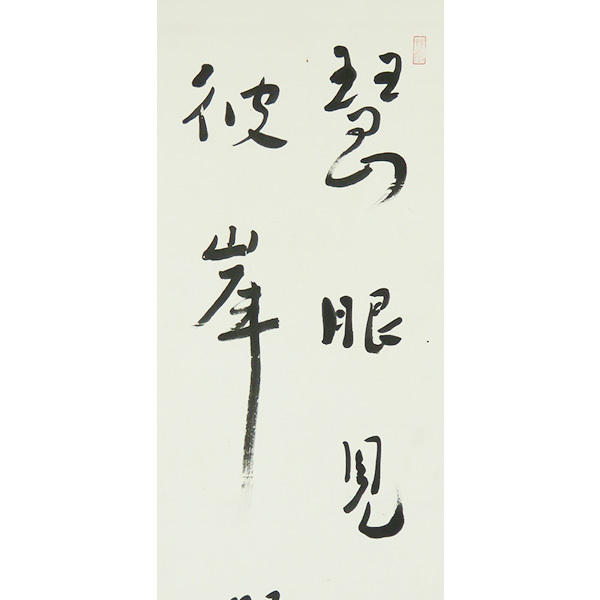 慧眼見
彼岸